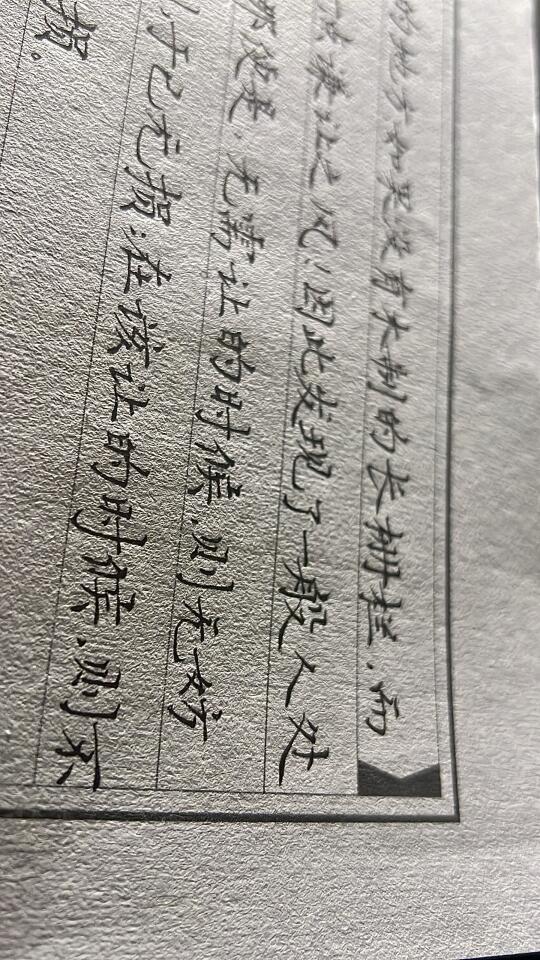 的地方如果没有木制的长栅栏，而
谦让之风！因此发现了一般人处
便是：无需让的时候，则无妨
于己无损；在该让的时候，则不
损。